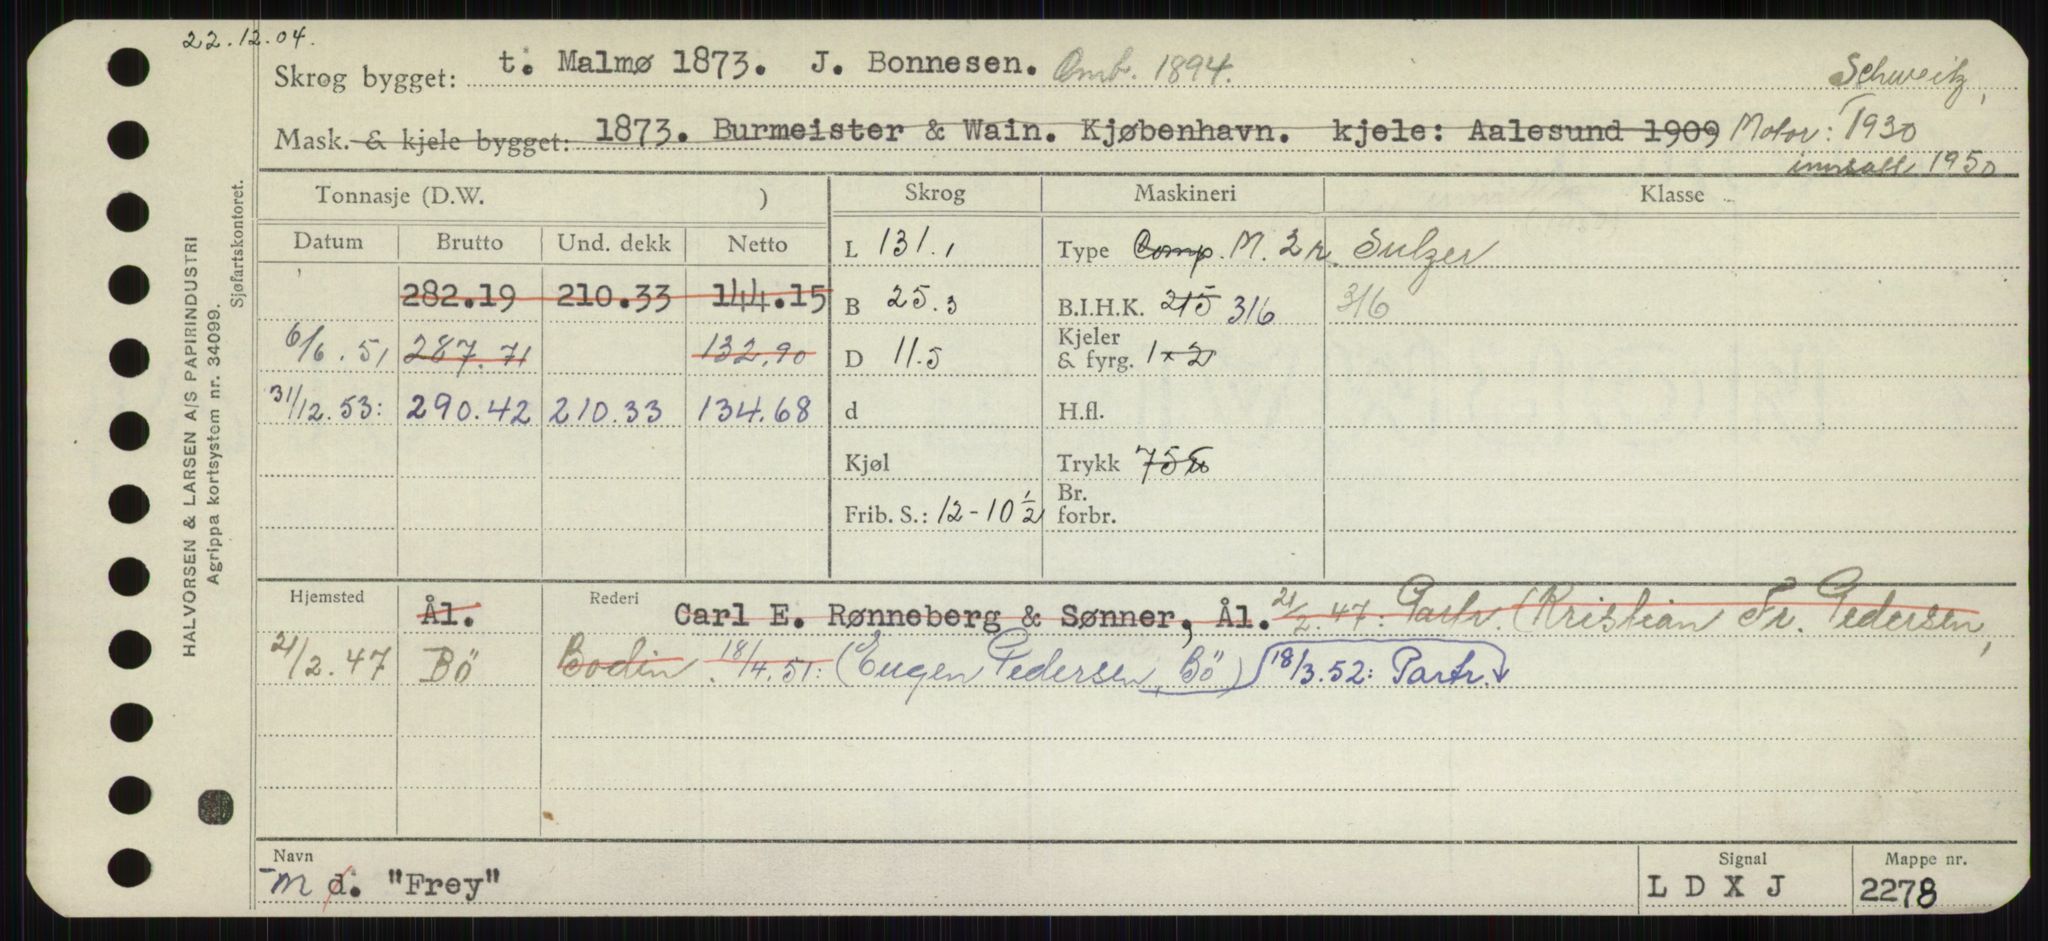 22.12.04.
Skrog bygget: t. Malmø 1873. J. Bonnesen. Omb. 1894. Schweitz,
Mask. & kjele bygget: 1873. Burmeister & Wain. Kjøbenhavn. kjele: Aalesund 1909 Motor: 1930
innsatt 1950
Tonnasje (D.W. ) Skrog Maskineri Klasse
Datum Brutto Und. dekk Netto L 131.1 Type Comp. M. 2 Sulzer
282.19 210.33 144.15 B 25.3 B.I.H.K. 215 316 316
6/6.51 287.71 132.90 D 11.5 Kjeler & fyrg. 1 x 2
31/12.53: 290.42 210.33 134.68 d H.fl.
Kjøl Trykk
Frib. S.: 12-10 1/2 Br. forbr.
Hjemsted Ål. Rederi Carl E. Rønneberg & Sønner, Ål. 21/2.47: Partr. (Kristian Fr. Pedersen,
21/2.47 Bö Bodin. 18/4.51: (Eugen Pedersen, Bö) 18/3.52: Partr.
Navn Signal Mappe nr.
m d. "Frey" L D X J 2278
HALVORSEN & LARSEN A/S PAPIRINDUSTRI
Agrippa kortsystem nr. 34099.
Sjøfartskontoret.